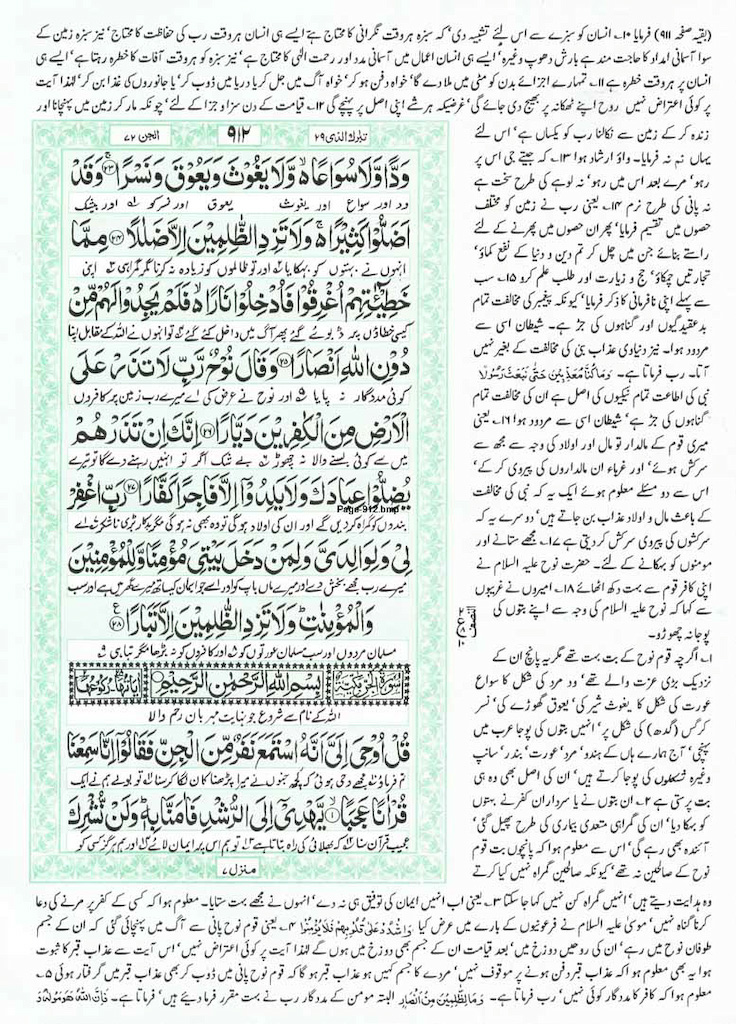 (بقیہ صفحہ ۹۱۱) فرمایا ۱۰۔ انسان کو سبزے سے اس لئے تشبیہ دی کہ سبزہ ہر وقت نگرانی کا محتاج ہے ایسے ہی انسان ہر وقت رب کی حفاظت کا محتاج ۔ نیز سبزہ زمین کے
سوا آسمانی امداد کا حاجت مند ہے بارش دھوپ وغیرہ ایسے ہی انسان اعمال میں آسمانی مدد اور رحمت الٰہی کا محتاج ہے نیز سبزہ کو ہر وقت آفات کا خطرہ رہتا ہے ایسے ہی
انسان پر ہر وقت خطرہ ہے ۱۱۔ تمہارے اجزائے بدن کو مٹی میں ملا دے گا خواہ دفن ہو کر خواہ آگ میں جل کر یا دریا میں ڈوب کر یا جانوروں کی غذا بن کر لہٰذا آیت
پر کوئی اعتراض نہیں روح اپنے ٹھکانہ پر بھیج دی جائے گی غرضیکہ ہر شے اپنی اصل پر پہنچے گی ۱۲۔ قیامت کے دن سزا و جزا کے لئے چونکہ مار کر زمین میں پہنچانا اور
تبٰرک الذی ۲۹
۹۱۲
الجن ۷۲
وَدًّا وَّلَا سُوَاعًا ۙ وَّلَا یَغُوْثَ وَیَعُوْقَ وَنَسْرًا ۚ﴿۲۳﴾ وَقَدْ
ود اور سواع اور یغوث یعوق اور نسر کو اور بیشک
اَضَلُّوْا كَثِیْرًا ۚ وَلَا تَزِدِ الظّٰلِمِیْنَ اِلَّا ضَلٰلًا ﴿۲۴﴾ مِمَّا
انہوں نے بہتوں کو بہکایا اور تو ظالموں کو زیادہ نہ کرنا مگر گمراہی اپنی
خَطِیْٓـٰٔتِهِمْ اُغْرِقُوْا فَاُدْخِلُوْا نَارًا ۙ فَلَمْ یَجِدُوْا لَهُمْ مِّنْ
کیسی خطاؤں پر ڈبوئے گئے پھر آگ میں داخل کئے گئے تو انہوں نے اللہ کے مقابل اپنا
دُوْنِ اللّٰهِ اَنْصَارًا ﴿۲۵﴾ وَقَالَ نُوْحٌ رَّبِّ لَا تَذَرْ عَلَی
کوئی مددگار نہ پایا اور نوح نے عرض کی اے میرے رب زمین پر کافروں
الْاَرْضِ مِنَ الْكٰفِرِیْنَ دَیَّارًا ﴿۲۶﴾ اِنَّكَ اِنْ تَذَرْهُمْ
میں سے کوئی بسنے والا نہ چھوڑ بے شک اگر تو انہیں رہنے دے گا تو تیرے
یُضِلُّوْا عِبَادَكَ وَلَا یَلِدُوْۤا اِلَّا فَاجِرًا كَفَّارًا ﴿۲۷﴾ رَبِّ اغْفِرْ
Page-912.bmp
بندوں کو گمراہ کر دیں گے اور ان کی اولاد ہوگی تو وہ بھی نہ ہوگی مگر بدکار بڑی ناشکر اے
لِیْ وَلِوَالِدَیَّ وَلِمَنْ دَخَلَ بَیْتِیَ مُؤْمِنًا وَّلِلْمُؤْمِنِیْنَ
میرے رب مجھے بخش دے اور میرے ماں باپ کو اور اسے جو ایمان کیساتھ میرے گھر میں ہے اور سب
وَالْمُؤْمِنٰتِ ؕ وَلَا تَزِدِ الظّٰلِمِیْنَ اِلَّا تَبَارًا ﴿۲۸﴾
مسلمان مردوں اور سب مسلمان عورتوں کو اور کافروں کو نہ بڑھا مگر تباہی
سُوْرَةُ الْجِنِّ مَكِّیَّةٌ
بِسْمِ اللّٰهِ الرَّحْمٰنِ الرَّحِیْمِ
اللہ کے نام سے شروع جو نہایت مہربان رحم والا
قُلْ اُوْحِیَ اِلَیَّ اَنَّهُ اسْتَمَعَ نَفَرٌ مِّنَ الْجِنِّ فَقَالُوْۤا اِنَّا سَمِعْنَا
تم فرماؤ مجھے وحی ہوئی کہ کچھ جنوں نے میرا پڑھنا کان لگا کر سنا تو بولے ہم نے ایک
قُرْاٰنًا عَجَبًا ۙ﴿۱﴾ یَّهْدِیْۤ اِلَی الرُّشْدِ فَاٰمَنَّا بِهٖ ؕ وَلَنْ نُّشْرِكَ
عجیب قرآن سنا کہ بھلائی کی راہ بتاتا ہے تو ہم اس پر ایمان لائے اور ہم ہرگز کسی کو
منزل ۷
زندہ کر کے زمین سے نکالنا رب کو یکساں ہے اس لئے
یہاں ثم نہ فرمایا۔ واؤ ارشاد ہوا ۱۳۔ کہ جیتے جی اس پر
رہو مرے بعد اس میں رہو نہ لوہے کی طرح سخت ہے
نہ پانی کی طرح نرم ۱۴۔ یعنی رب نے زمین کو مختلف
حصوں میں تقسیم فرمایا پھر ان حصوں میں پھرنے کے لئے
راستے بنائے جن میں چل کر تم دین و دنیا کے نفع کماؤ
تجارتیں چمکاؤ حج و زیارت اور طلب علم کرو ۱۵۔ سب
سے پہلے اپنی نافرمانی کا ذکر فرمایا کیونکہ پیغمبر کی مخالفت تمام
بدعقیدگیوں اور گناہوں کی جڑ ہے۔ شیطان اسی سے
مردود ہوا۔ نیز دنیاوی عذاب نبی کی مخالفت کے بغیر نہیں
آتا۔ رب فرماتا ہے۔ وَمَا كُنَّا مُعَذِّبِیْنَ حَتّٰی نَبْعَثَ رَسُوْلًا
نبی کی اطاعت تمام نیکیوں کی اصل ہے ان کی مخالفت تمام
گناہوں کی جڑ ہے شیطان اسی سے مردود ہوا ۱۶۔ یعنی
میری قوم کے مالدار تو مال اور اولاد کی وجہ سے مجھ سے
سرکش ہوئے اور غرباء ان مالداروں کی پیروی کر کے
اس سے دو مسئلے معلوم ہوئے ایک یہ کہ نبی کی مخالفت
کے باعث مال و اولاد عذاب بن جاتے ہیں دوسرے یہ کہ
سرکشوں کی پیروی سرکش کر دیتی ہے ۱۷۔ مجھے ستانے اور
مومنوں کو بہکانے کے لئے۔ حضرت نوح علیہ السلام نے
اپنی کافر قوم سے بہت دکھ اٹھائے ۱۸۔ امیروں نے غریبوں
سے کہا کہ نوح علیہ السلام کی وجہ سے اپنے بتوں کی
پوجا نہ چھوڑو۔
النصف
۱۔ اگرچہ قوم نوح کے بت بہت تھے مگر یہ پانچ ان کے
نزدیک بڑی عزت والے تھے ود مرد کی شکل کا سواع
عورت کی شکل کا یغوث شیر کی یعوق گھوڑے کی نسر
کرگس (گدھ) کی شکل پر انہیں بتوں کی پوجا عرب میں
پہنچی آج ہمارے ہاں کے ہندو مرد عورت بندر سانپ
وغیرہ شکلوں کی پوجا کرتے ہیں ان کی اصل بھی وہ ہی
بت پرستی ہے ۲۔ ان بتوں نے یا سرداران کفر نے بہتوں
کو بہکا دیا ان کی گمراہی متعدی بیماری کی طرح پھیل گئی
آئندہ بھی رہے گی اس سے معلوم ہوا کہ پانچوں بت قوم
نوح کے صالحین نہ تھے کیونکہ صالحین گمراہ نہیں کیا کرتے
وہ ہدایت دیتے ہیں انہیں گمراہ کن نہیں کہا جا سکتا ۳۔ یعنی اب انہیں ایمان کی توفیق ہی نہ دے انہوں نے مجھے بہت ستایا۔ معلوم ہوا کہ کسی کے کفر پر مرنے کی دعا
کرنا گناہ نہیں موسیٰ علیہ السلام نے فرعونیوں کے بارے میں عرض کیا وَاشْدُدْ عَلٰی قُلُوْبِهِمْ فَلَا یُؤْمِنُوْا ۴۔ یعنی قوم نوح پانی سے آگ میں پہنچائی گئی کہ ان کے جسم
طوفان نوح میں رہے ان کی روحیں دوزخ میں بعد قیامت ان کے جسم بھی دوزخ میں ہوں گے لہٰذا آیت پر کوئی اعتراض نہیں اس آیت سے عذاب قبر کا ثبوت
ہوا یہ بھی معلوم ہوا کہ عذاب قبر دفن ہونے پر موقوف نہیں مردے کا جسم کہیں ہو عذاب قبر ہوگا کہ قوم نوح پانی میں ڈوب کر بھی عذاب قبر میں گرفتار ہوئی ۵۔
یعنی معلوم ہوا کہ کافر کا مددگار کوئی نہیں رب فرماتا ہے۔ وَمَا لِلظّٰلِمِیْنَ مِنْ اَنْصَارٍ البتہ مومن کے مددگار رب نے بہت مقرر فرما دیئے ہیں فرماتا ہے۔ فَاِنَّ اللّٰهَ هُوَ مَوْلٰىهُ